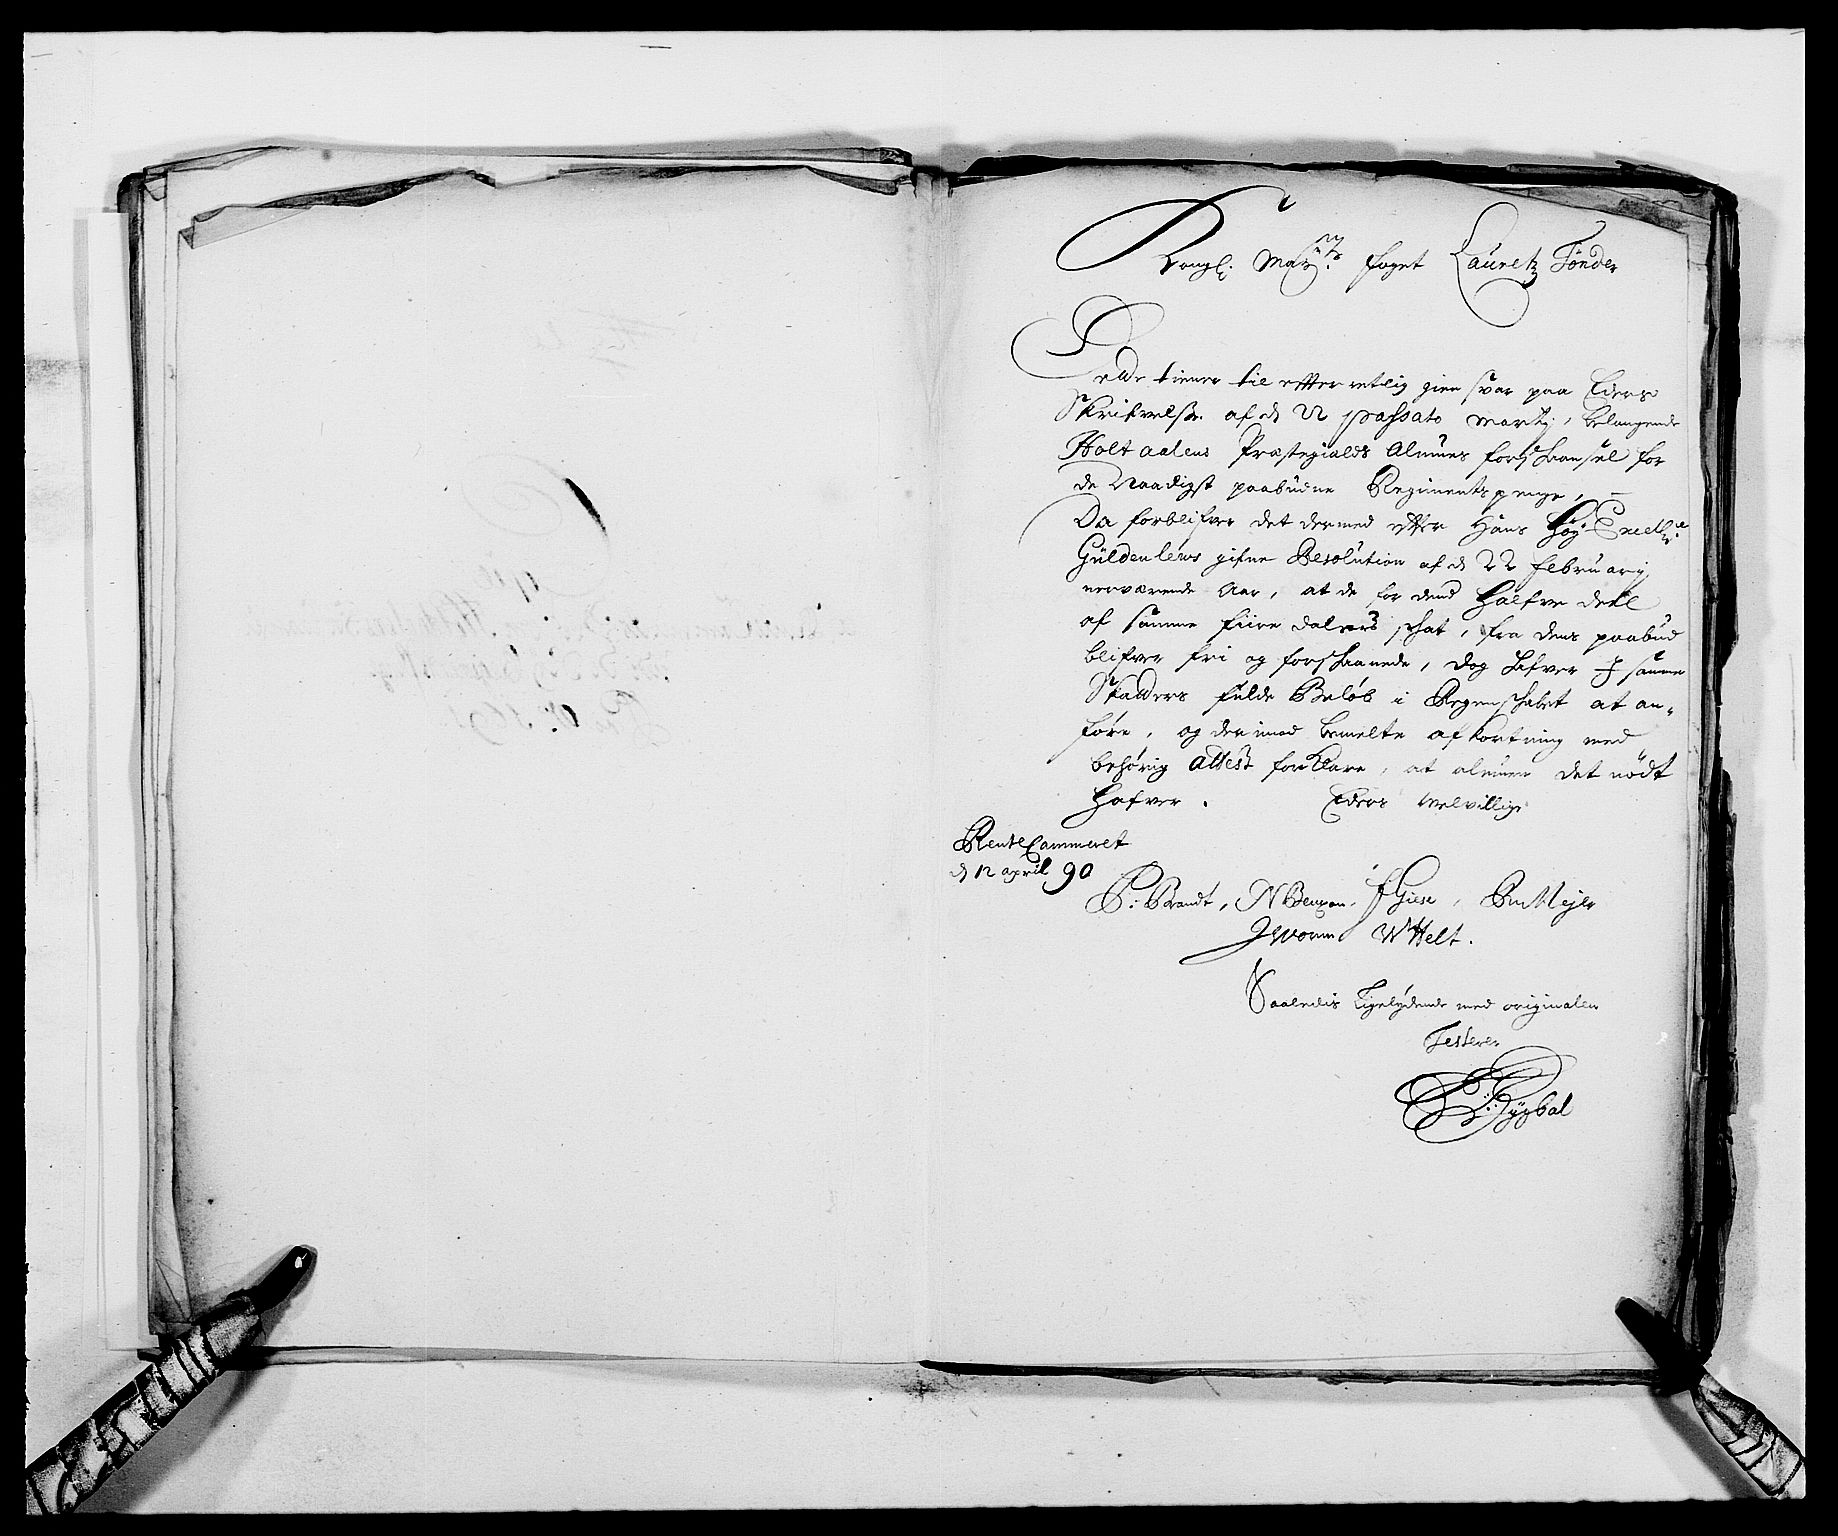 Kongl: May:ts foget Lauretz Tønder
Dette tiener til efterretlig gien svar paa Eders
Skrifvelse af d 22 passato Martij, belangende
Holtaalens Præstegields Almues forschaansel for
de Naadigst paabudne Regimentspenge,
Da forblifver det dermed efter Hans Høy Excell:
Güldenlews gifne Resolution af d 22 februarij
nerværende Aar, at de for dend halfve deel
af samme fiire dalers schat, fra dens paabud
blifver fri og forschaanede, dog hafver I samme
Skatters fulde Beløb i Regenschabet at an-
føre, og derimod bemelte afkortning med
behørig Attest forklare, at almuen det nødt
hafver. Eders Velvillige
RenteCammeret
d 12 april 90
P: Brandt, N Benzon, J Giese, Meyer
J Worm W Helt.
Saaledis ligelydende med originalen
Testerer